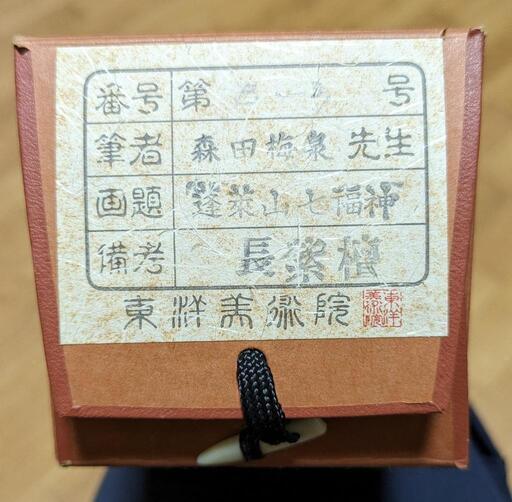 番号 第 号
筆者 森田梅泉先生
画題 蓬莱山七福神
備考 長紫檀
東洋美術院
東洋美術院